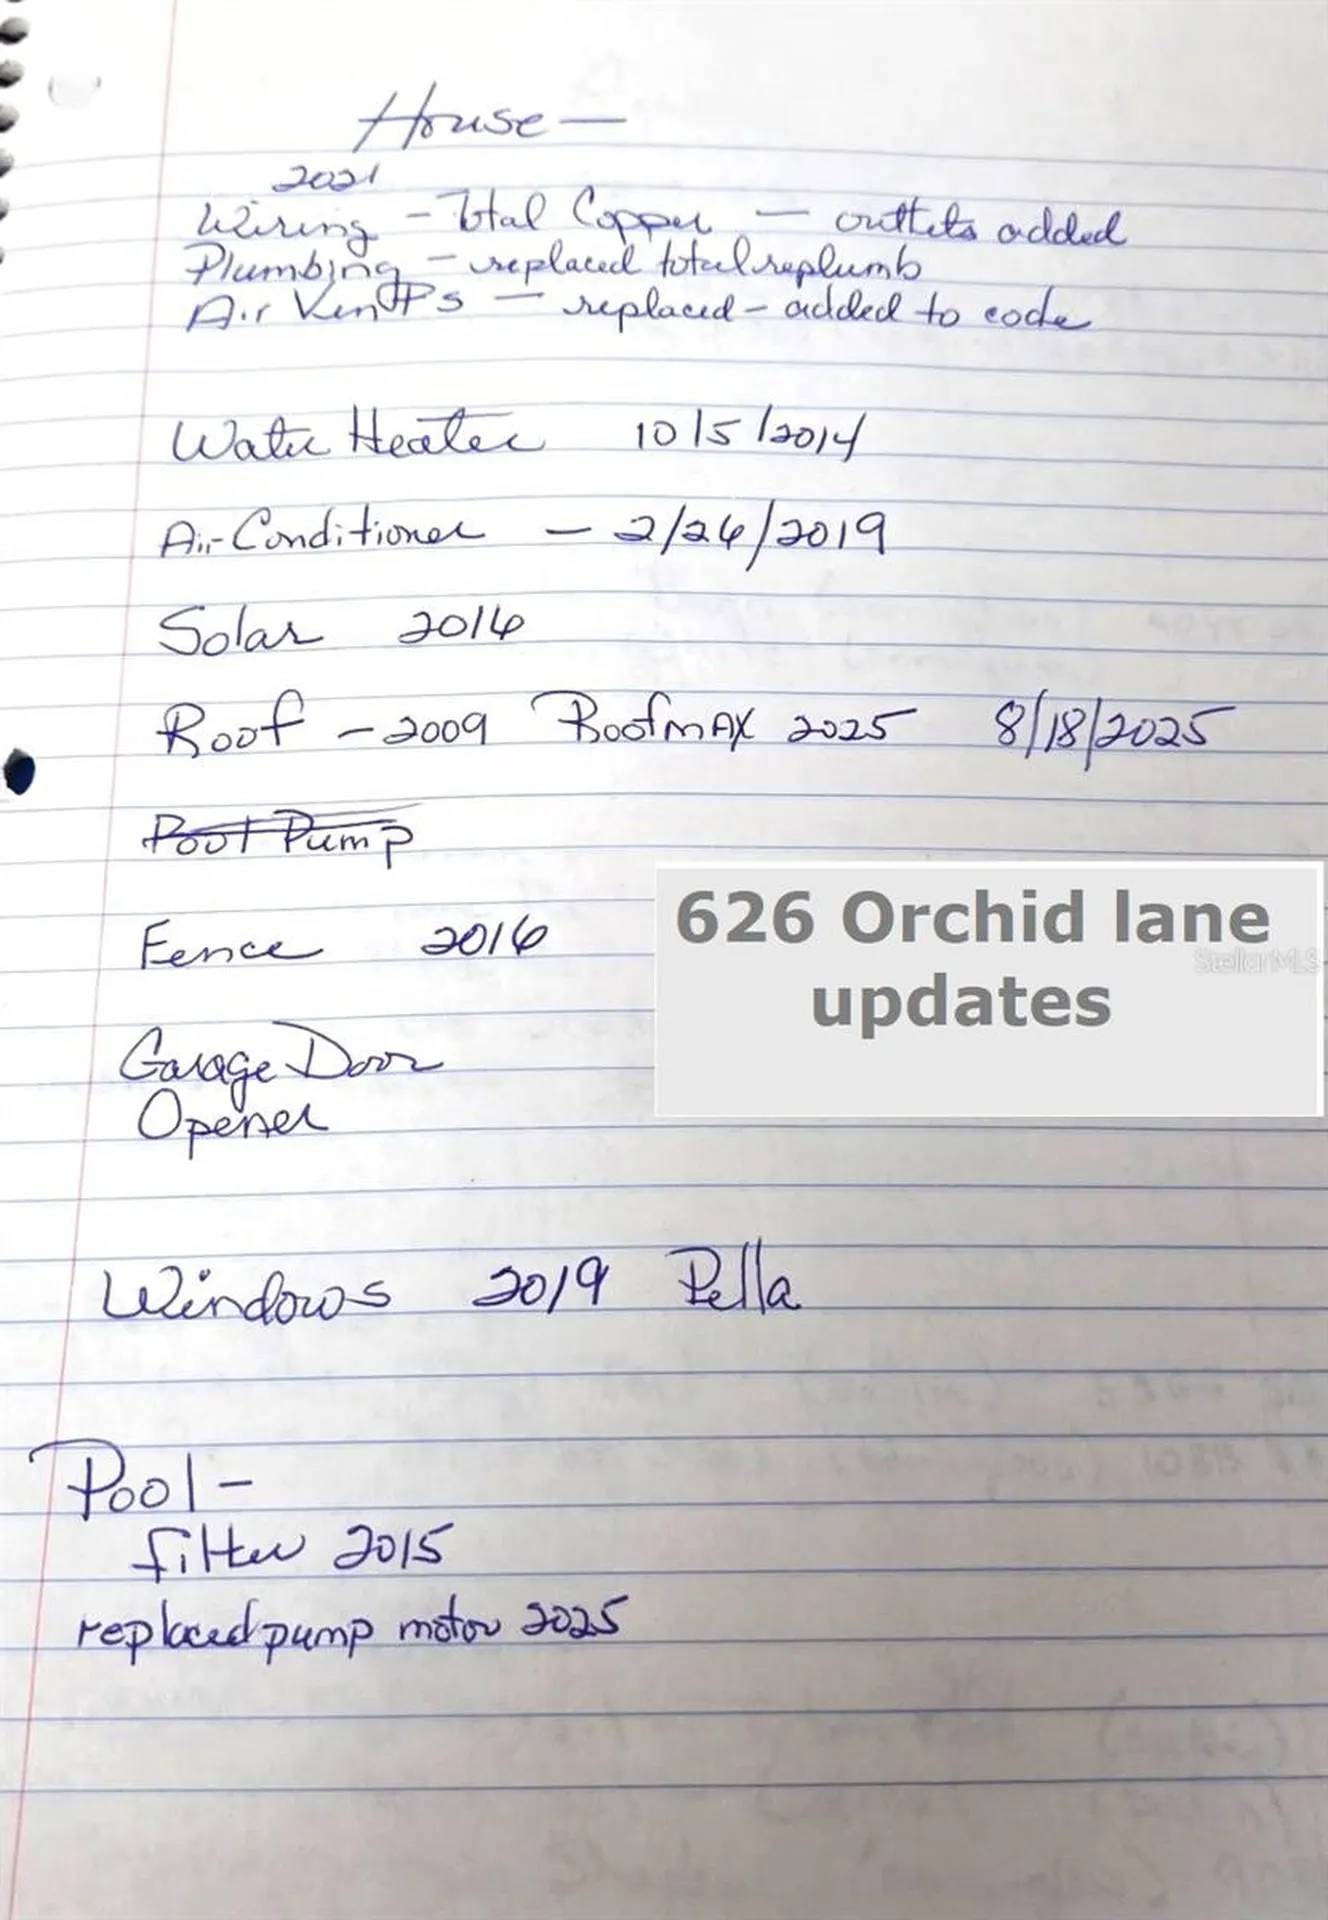 House —
2021
Wiring - Total Copper — outlets added
Plumbing - replaced total replumb
Air Vents — replaced - added to code
Water Heater 10/5/2014
Air-Conditioner - 2/26/2019
Solar 2016
Roof - 2009 RoofmAX 2025 8/18/2025
Pool Pump
Fence 2016
626 Orchid lane
StellarMLS
updates
Garage Door
Opener
Windows 2019 Pella
Pool -
filter 2015
replaced pump motor 2025